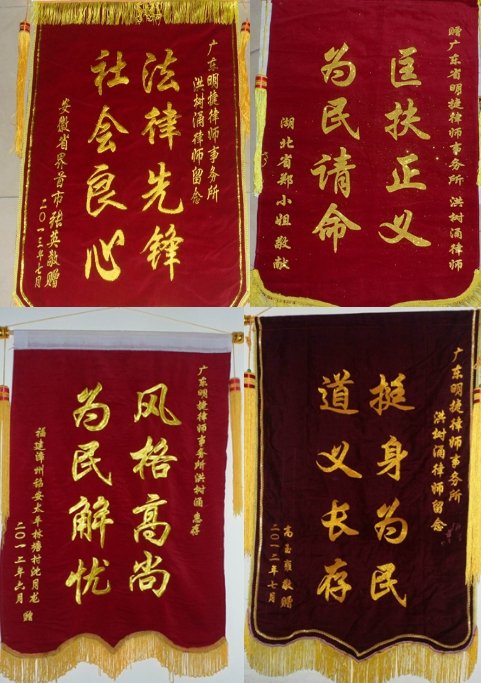 广东明捷律师事务所
洪树涌律师留念
法律先锋
社会良心
安徽省界首市张英敬赠
二〇一三年七月
赠广东省明捷律师事务所 洪树涌律师
匡扶正义
为民请命
湖北省郑小姐敬献
广东明捷律师事务所洪树涌 惠存
风格高尚
为民解忧
福建漳州诏安太平林塘村沈月龙
二〇一二年六月 赠
广东明捷律师事务所
洪树涌律师留念
挺身为民
道义长存
高玉雍敬赠
二〇一二年七月